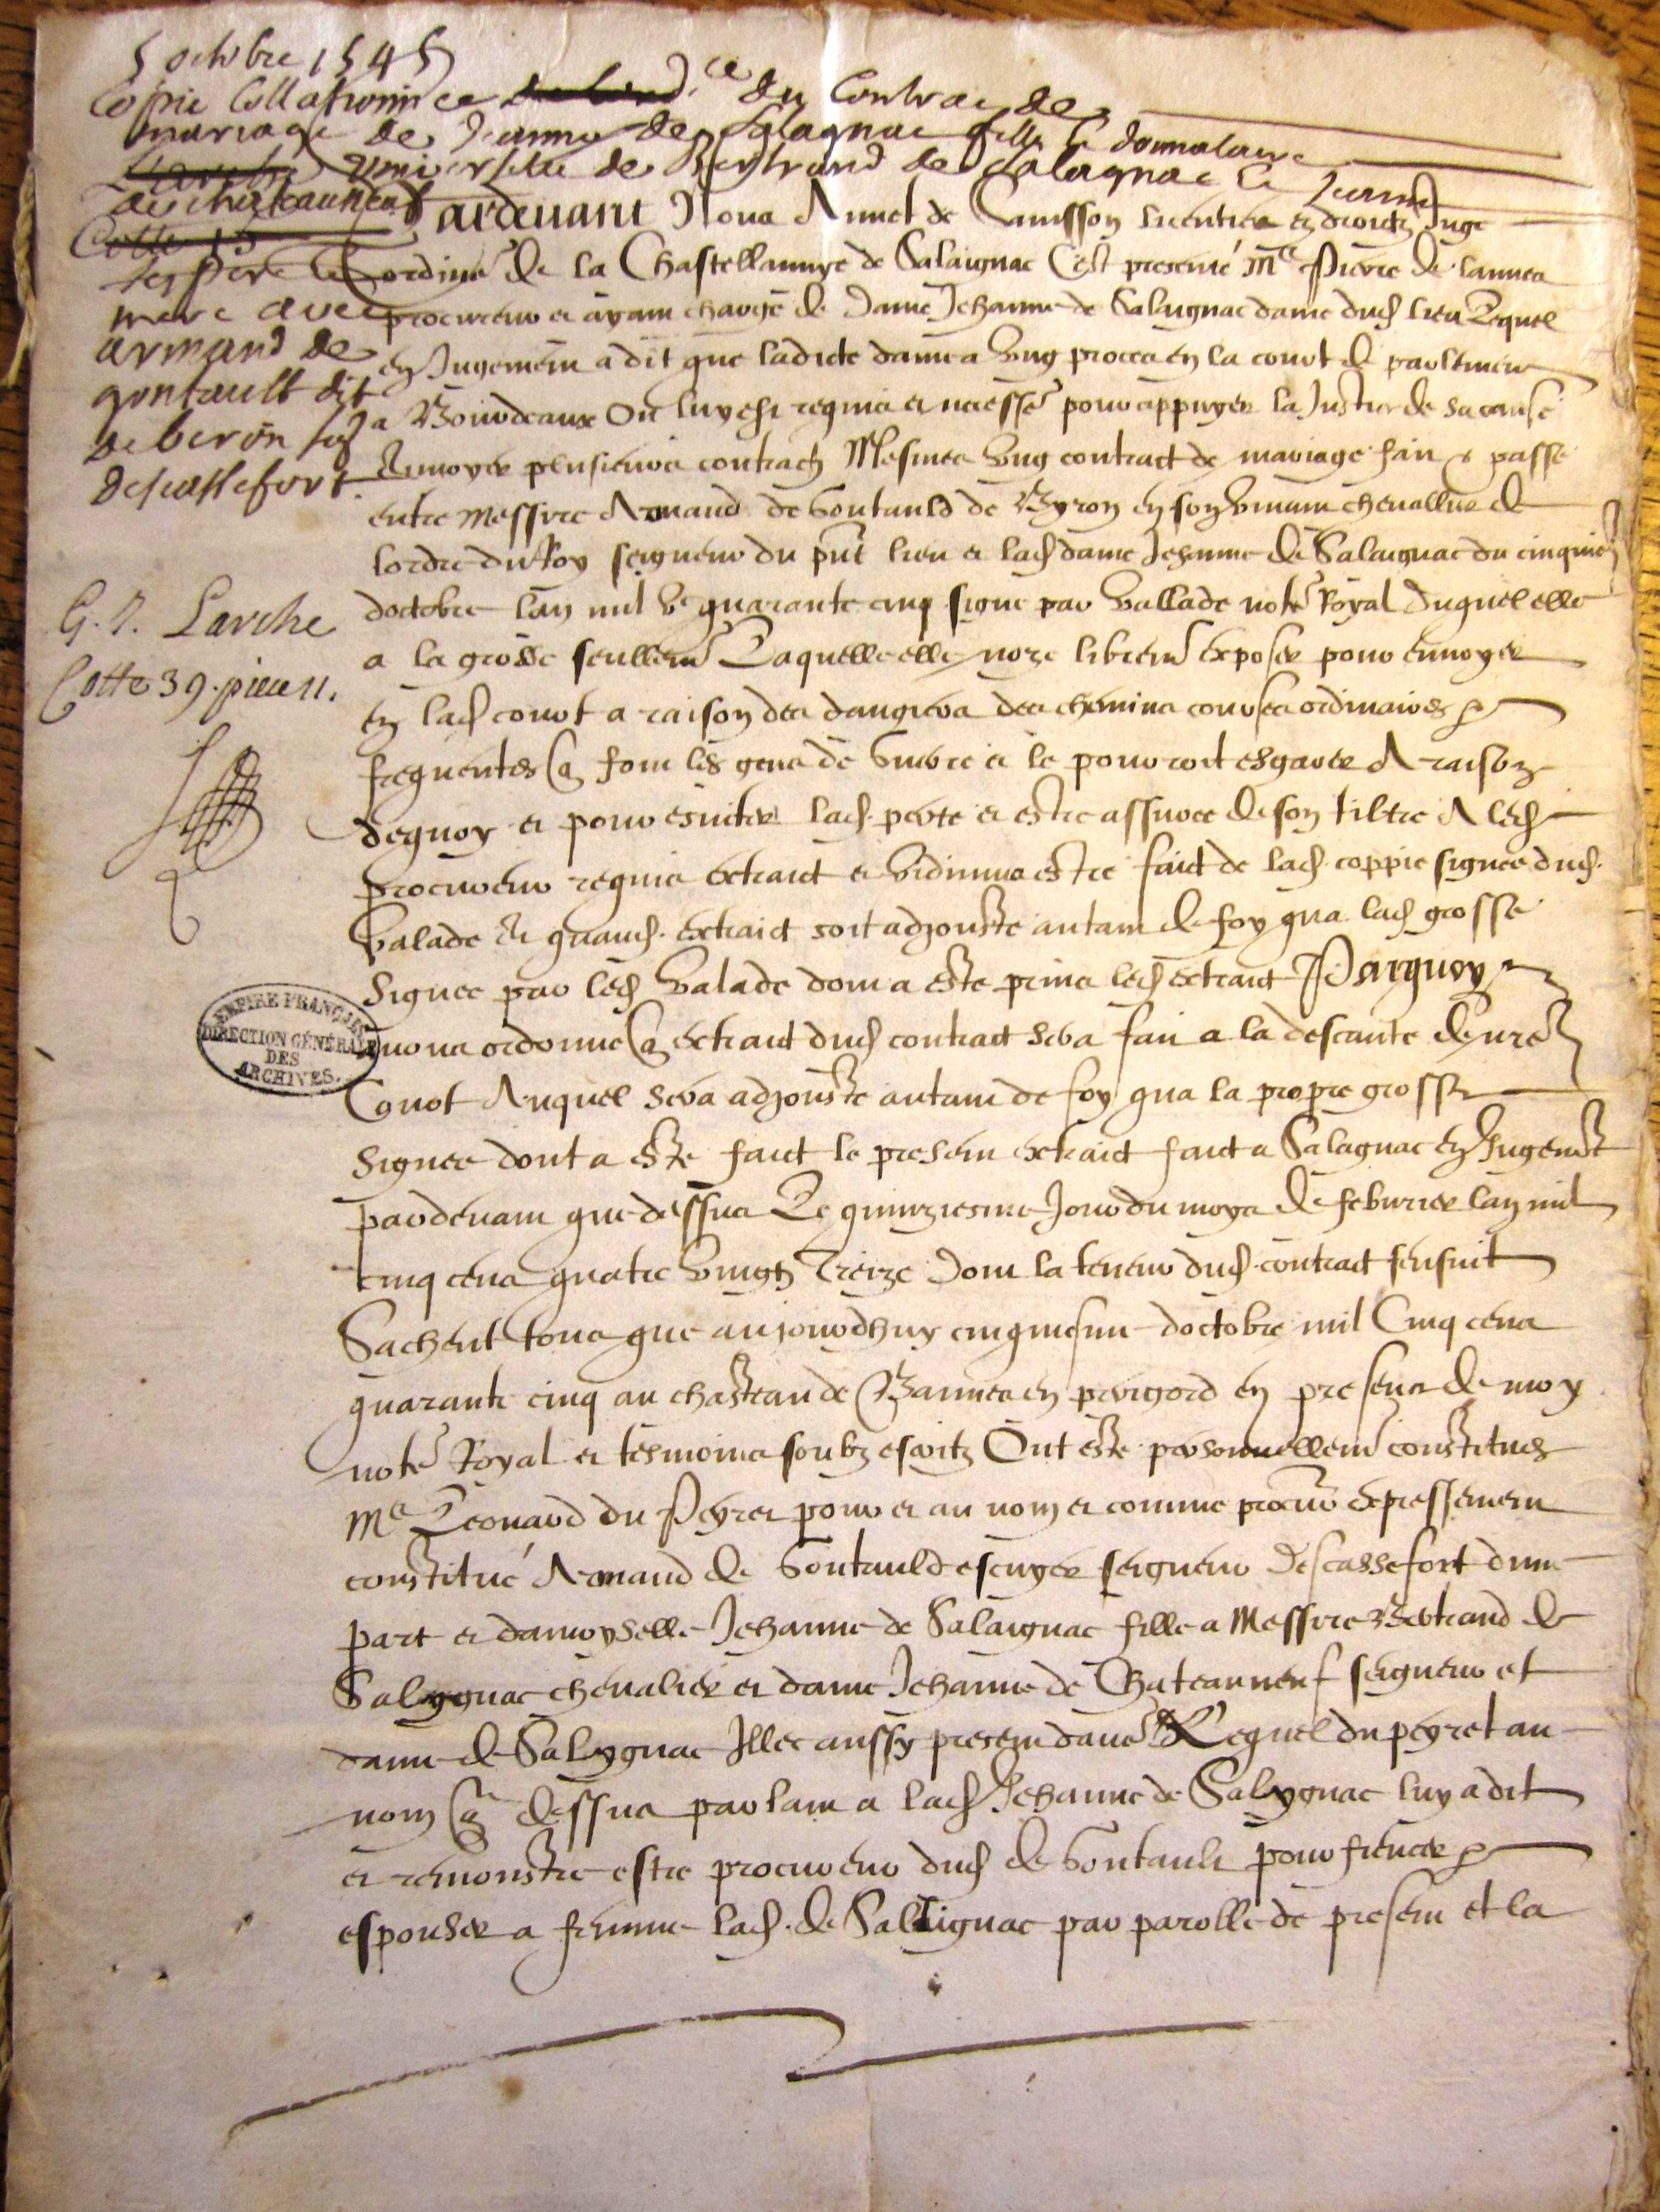 5 octobre 1545
Coppie Collationnee du Contrac de
mariage de Jeanne de Salagnac fille & donnataire
universelle de Bertrand de Salagnac & Jeanne
de chateauneuf
ses pere &
mere avec
armand de
gontault dit
de beron sgr
descassefort.
G. 7. Larche
Cotte 39. piece 11.
EMPIRE FRANÇAIS
DIRECTION GÉNÉRALE
DES
ARCHIVES.
Pardevant Nous Annet de licentier ez droictz Juge
ordinre de la Chastellannye de Salaignac C'est presenté Me Pierre de lannes
procureur et ayant charge de Dame Jehanne de Salaignac dame dud lieu Lequel
en Jugement a dit que ladicte dame a vng proces en la court de parlement
a Bourdeaux Ou luy est requis et necessre pour appuyer la Justice de sa cause
envoyer plusieurs contractz Mesmes vng contract de mariage fait & passé
entre messire Armand de Gontauld de Byron en son vivant chevallier de
lordre du Roy seigneur du pnt lieu et lad dame Jehanne de Salaignac du cinquiesme
doctobre lan mil vc quarante cinq signe par Vallade notre Royal Duquel elle
a la grosse seullemt Laquelle elle noze libremt exposer pour envoyer
en lad court a raison des dangiers des chemins courses ordinaires &
frequentes q font les gens de guerre et se pourroit esgarer A raison
dequoy et pour esviter lad. perte et estre assuree de son tiltre A led
procureur requis extraict et vidimus estre faict de lad. coppie signee dud.
Valade Et quaud. extraict soit adjouste autant de foy qua lad grosse
signee par led Valade dont a este prins led extraict Parquoy
nous ordonne q extraict dud contract sera fait a la descante de nre
Court Auquel sera adjouste autant de foy qua la propre grosse
signee dont a este faict le present extraict faict a Salagnac en Jugemt
pardevant que dessus Le quinziesme Jour du moys de febvrier lan mil
cinq cens quatre vingtz Treize Dont la teneur dud. contract sensuit
Sachent tous que aujourdhuy cinquiesme doctobre mil Cinq cens
quarante cinq au chasteau de Bannes en perigord en presence de moy
notre Royal et tesmoins soubz escritz Ont este personnellemt constitues
Me Leonard du Peyret pour et au nom et comme procur expressement
constitué Armand de Gontauld escuyer seigneur Descassefort dune
part et damoyselle Jehanne de Salaignac fille a Messire Bertrand de
Salygnac chevalier et dame Jehanne de Chateauneuf seigneur et
dame de Salygnac Illec aussy present Lequel du peyret au
nom q dessus parlant a lad Jehanne de Salygnac luy a dit
et remonstre estre procureur dud de Gontault pour fiencer &
espouser a femme lad. de Sallignac par parolle de present et la